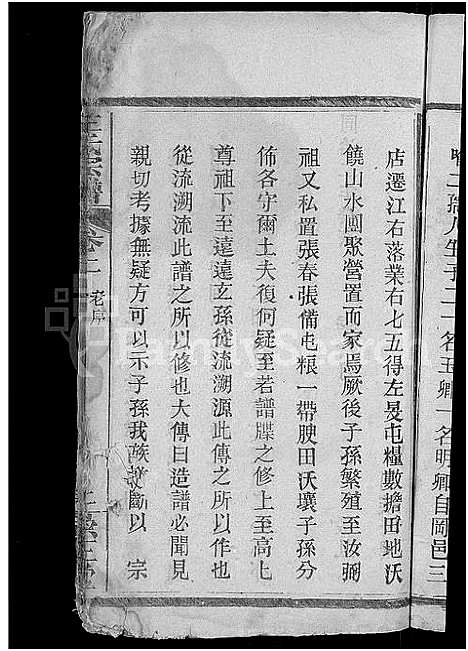 哈二孺人生子二一名玉卿一名明卿自岡邑三
店遷江右落業右七五得左旻屯糧數擔田地沃
饒山水團聚營置而家焉厥後子孫繁殖至汝弼
祖又私置張春張備屯粮一帶腴田沃壤子孫分
佈各守爾土夫復何疑至若譜牒之修上至高上
尊祖下至遠遠玄孫從流溯源此傳之所以作也
從流溯流此譜之所以修也大傳曰造譜必聞見
親切考據無疑方可以示子孫我族譜斷以 宗
卷二 老序
FamilySearch